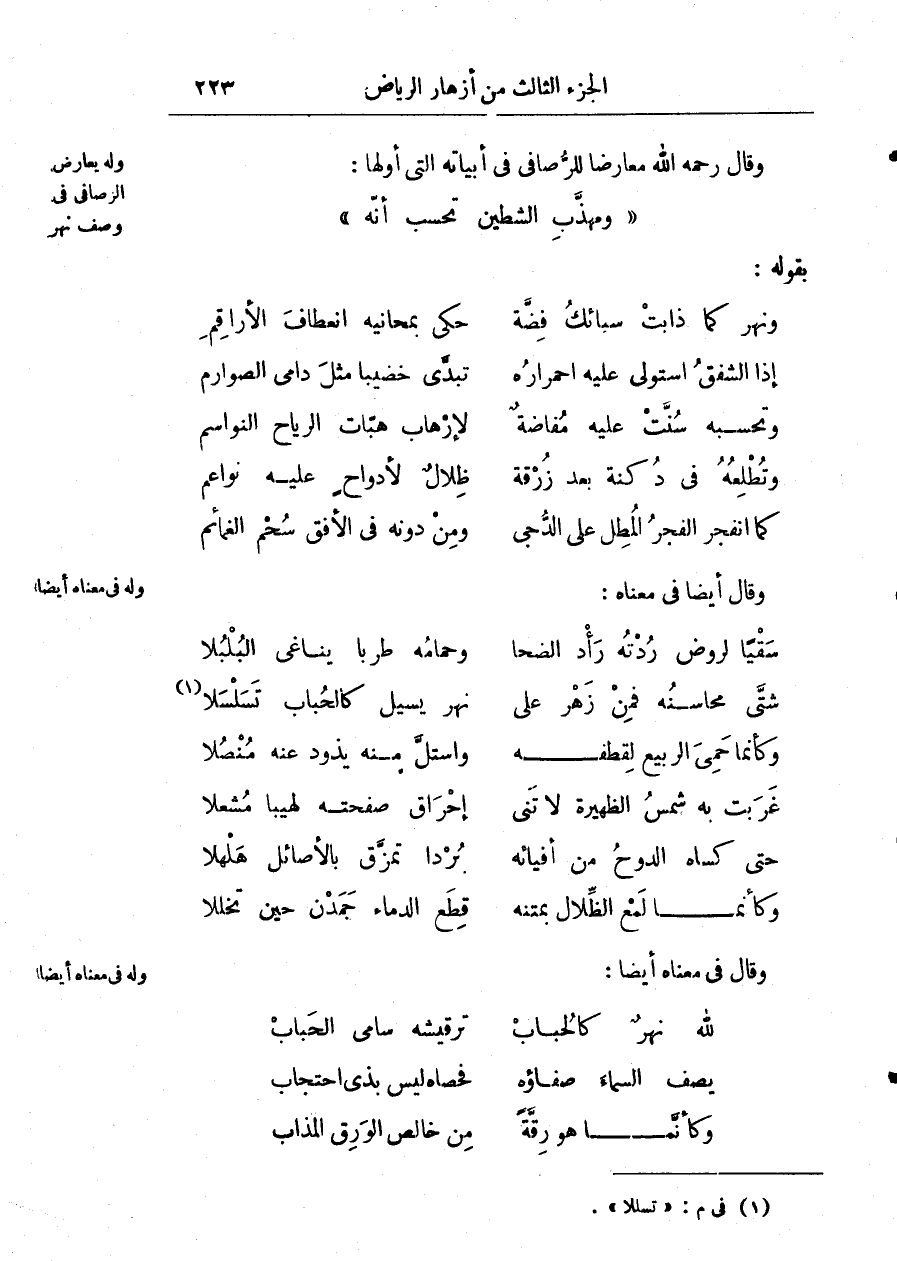 الجزء الثالث من أزهار الرياض ٢٢٣
وقال رحمه الله معارضا للرُّصافى فى أبياته التى أولها :
وله يعارض
الرصافى فى
وصف نهر
« ومهذَّبِ الشطين تحسب أنّه »
بقوله :
ونهر كما ذابتْ سبائكُ فِضَّة حكى بمحانيه انعطافَ الأراقِمِ
إذا الشفقُ استولى عليه احمرارُه تبدَّى خضيبا مثلَ دامى الصوارم
وتحسبه سُنَّتْ عليه مُفاضةٌ لإرْهاب هبّات الرياح النواسم
وتُطْلِعُهُ فى دُكنة بعد زُرْقة ظِلالٌ لأدواحٍ عليه نواعم
كما انفجر الفجرُ المُطِل على الدُّجى ومِنْ دونه فى الأفق سُحْم الغمائم
وقال أيضا فى معناه :
وله فى معناه أيضا
سَقْيًا لروض رُدْتُه رَأْد الضحا وحمامُه طربا يناغى البُلْبُلا
شتَّى محاسنُه فمِنْ زَهْر على نهر يسيل كالحُباب تَسَلْسَلا(١)
وكأنما حَمِىَ الربيع لِقطفه واستلَّ مِنه يذود عنه مُنْصُلا
غَرَبت به شمسُ الظهيرة لا تَنى إحْرَاق صفحته لهيبا مُشعلا
حتى كساه الدوحُ من أفيائه بُرْدا تمزَّق بالأصائل هَلْهلا
وكأنما لَمْع الظِّلال بمتنه قِطَع الدماء جَمَدْن حين تخللا
وقال فى معناه أيضا :
وله فى معناه أيضا
لله نهرٌ كالحُبابْ ترقيشه سامى الحَبابْ
يصف السماءَ صفاؤه فحصاه ليس بذى احتجاب
وكأنَّما هو رِقَّةً مِن خالص الوَرِق المذاب
(١) فى م : « تسللا » .